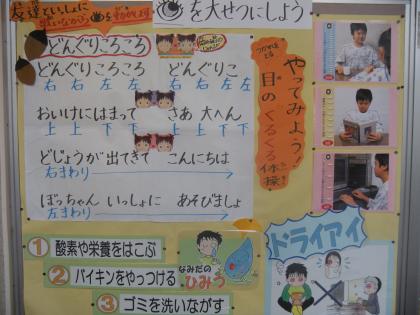 友達といっしょに
👁を大せつにしよう
どんぐりころころ
どんぐりころころ どんぐりこ
右 右 左 左 右 右 左 左
おいけにはまって さあ 大へん
上 上 下 下 上 上 下 下
どじょうが出てきて こんにちは
右まわり
ぼっちゃん いっしょに あそびましょ
左まわり
つかれをとる
やってみよう!
目のぐるぐる体操
① 酸素や栄養をはこぶ
② バイキンをやっつける
③ ゴミを洗いながす
なみだの
ひみつ
ドライアイ